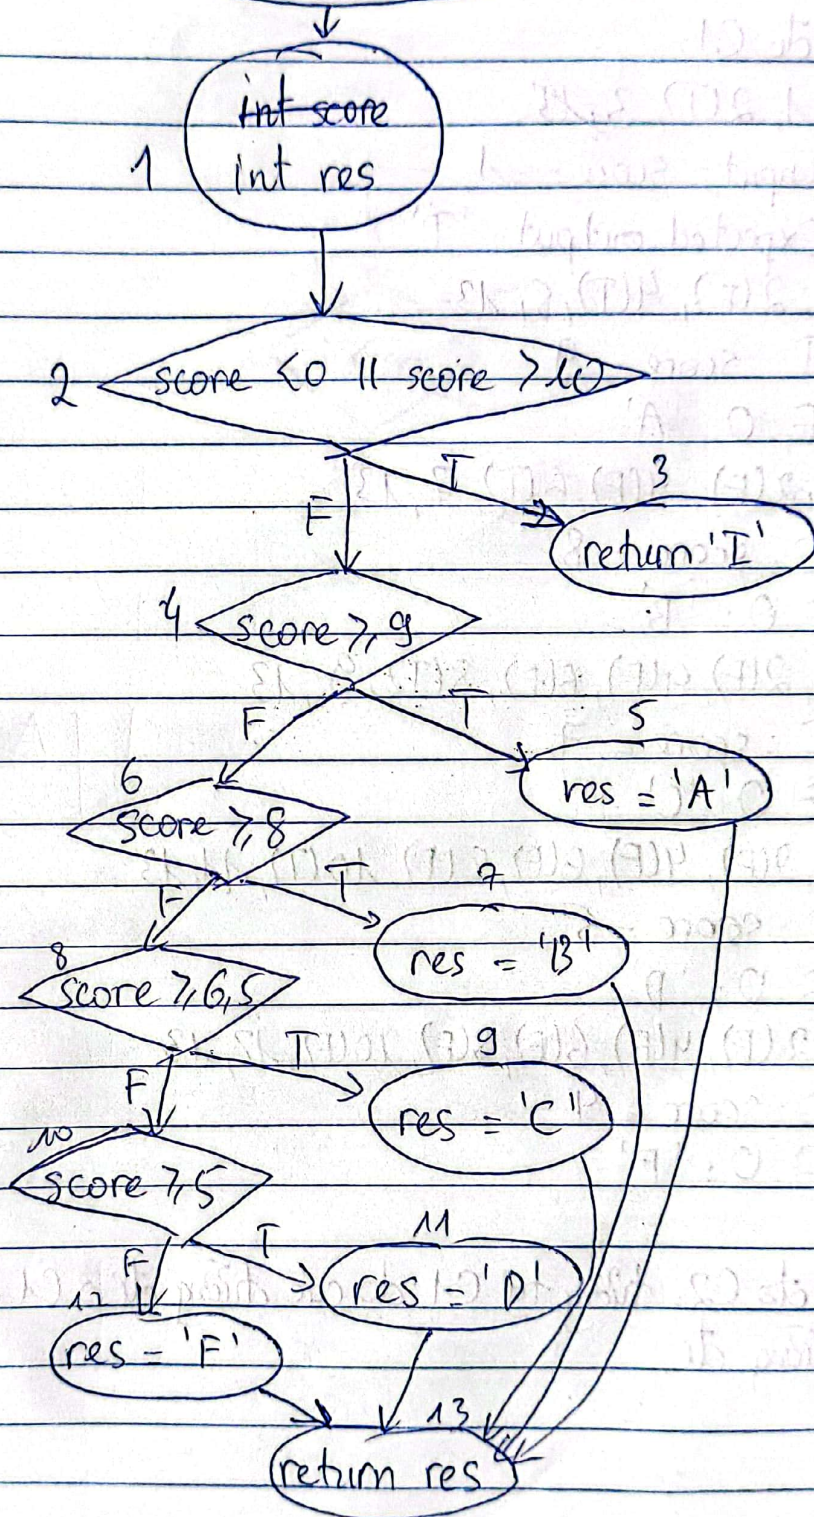 int score
1 int res
2 score <0 || score >10
T 3
F return 'I'
4 score ≥ 9
F T 5
6 res = 'A'
score ≥ 8
F T 7
8 res = 'B'
score ≥ 6,5
T 9
F res = 'C'
10
score ≥ 5
T 11
F res = 'D'
12
res = 'F'
13
return res